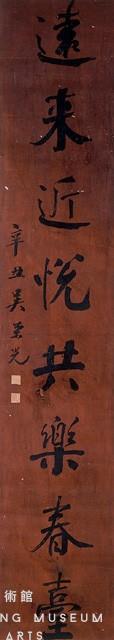 遠来近悅共樂春臺
辛丑吳榮光
術館
NG MUSEUM
ARTS